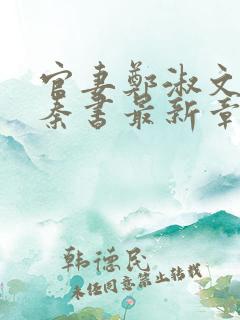 官妻鄭淑文
秦书最新章
韩德民
未经同意禁止转载